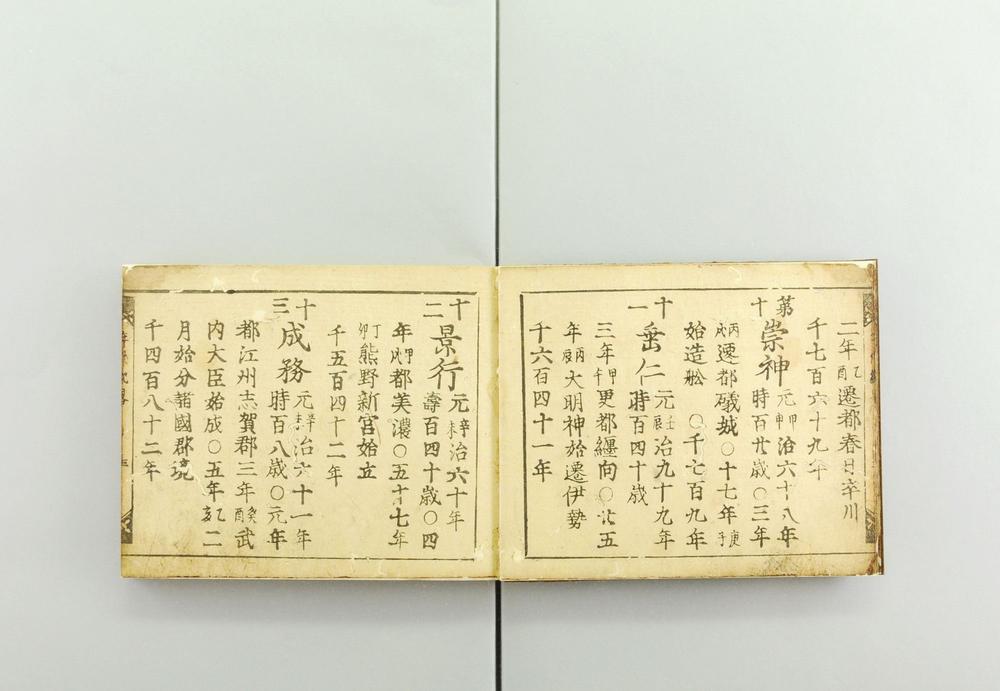 二年乙酉遷都春日率川
千七百六十九年
第十崇神元甲申治六十八年
時百廿歲〇三年
丙戌遷都礒城〇十七年庚子
始造舩〇千七百九年
十一垂仁元壬辰治九十九年
時百四十歲
三年甲午更都纏向〇廿五
年丙辰大明神始遷伊勢
千六百四十一年
十二景行元辛未治六十年
壽百四十歲〇四
年甲戌都美濃〇五十七年
丁卯熊野新宮始立
千五百四十二年
十三成務元辛未治六十一年
時百八歲〇元年
都江州志賀郡三年癸酉武
内大臣始成〇五年乙亥二
月始分諸國郡境
千四百八十二年